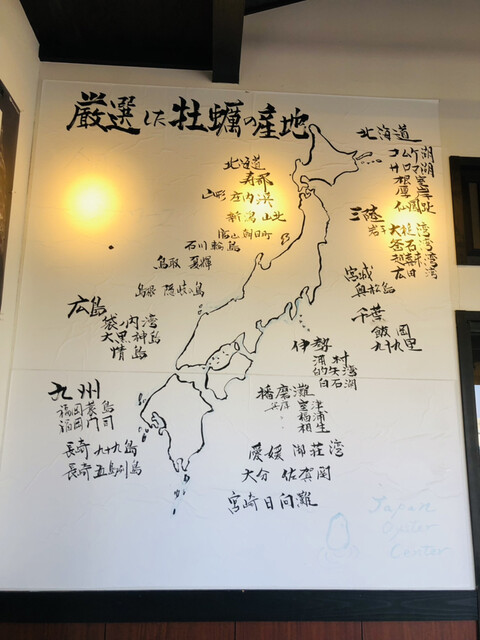 厳選した牡蠣の産地
北海道
サロマ湖
厚岸
仙鳳趾
三陸
岩手 大槌湾
釜石湾
越喜来湾
広田湾
宮城
奥松島
千葉
飯岡
九十九里
北海道
寿都
山形 庄内浜
新潟 山北
富山 朝日町
石川 輪島
鳥取 夏輝
島根 隠岐の島
広島
大黒神島
情島
伊勢
浦村
的矢湾
白石湖
播磨灘
兵庫 室津
相生
九州
福岡 門司
長崎 九十九島
長崎 五島列島
愛媛 御荘湾
大分 佐賀関
宮崎 日向灘
Japan
Oyster
Center